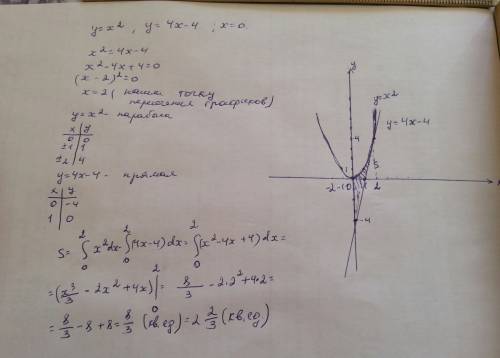 y=x² , y=4x-4 ; x=0.
x²=4x-4
x²-4x+4=0
(x-2)²=0
x=2 (нашли точку
пересечения графиков)
y=x² - парабола
x | y
0 | 0
±1 | 1
±2 | 4
y=4x-4 - прямая
x | y
0 | -4
1 | 0
S = ∫₀² x²dx - ∫₀² (4x-4)dx = ∫₀² (x²-4x+4)dx =
= (x³/3 - 2x² + 4x)|₀² = 8/3 - 2·2² + 4·2 =
= 8/3 - 8 + 8 = 8/3 (кв.ед) = 2 2/3 (кв.ед)
y
y=x²
y=4x-4
4
S
1
-2 -1 0 1 2
-4